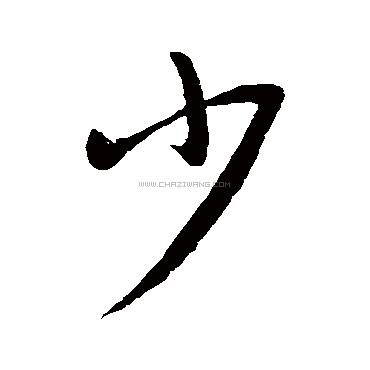 少
WWW.CHAZIWANG.COM